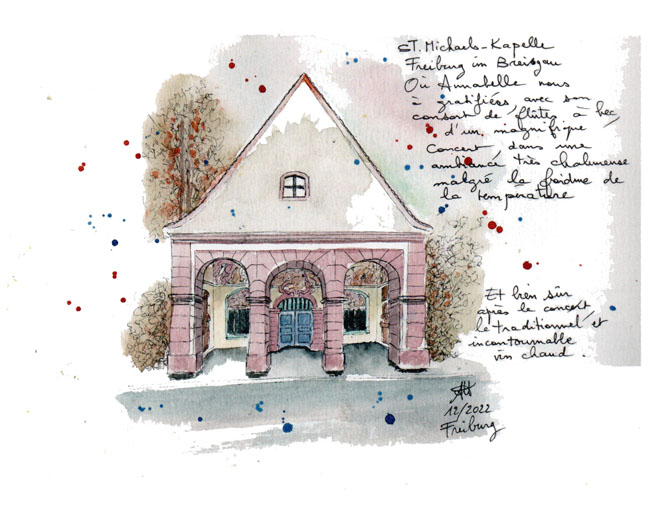 ST. Michaels-Kapelle
Freiburg im Breisgau
Où Annabelle nous
à gratifiées, avec son
consort de flûtes à bec,
d'un magnifique
Concert, dans une
ambiance très chaleureuse
malgré la froideur de
la température
Et bien sûr
après le concert,
le traditionnel et
incontournable
vin chaud.
12/2022
Freiburg